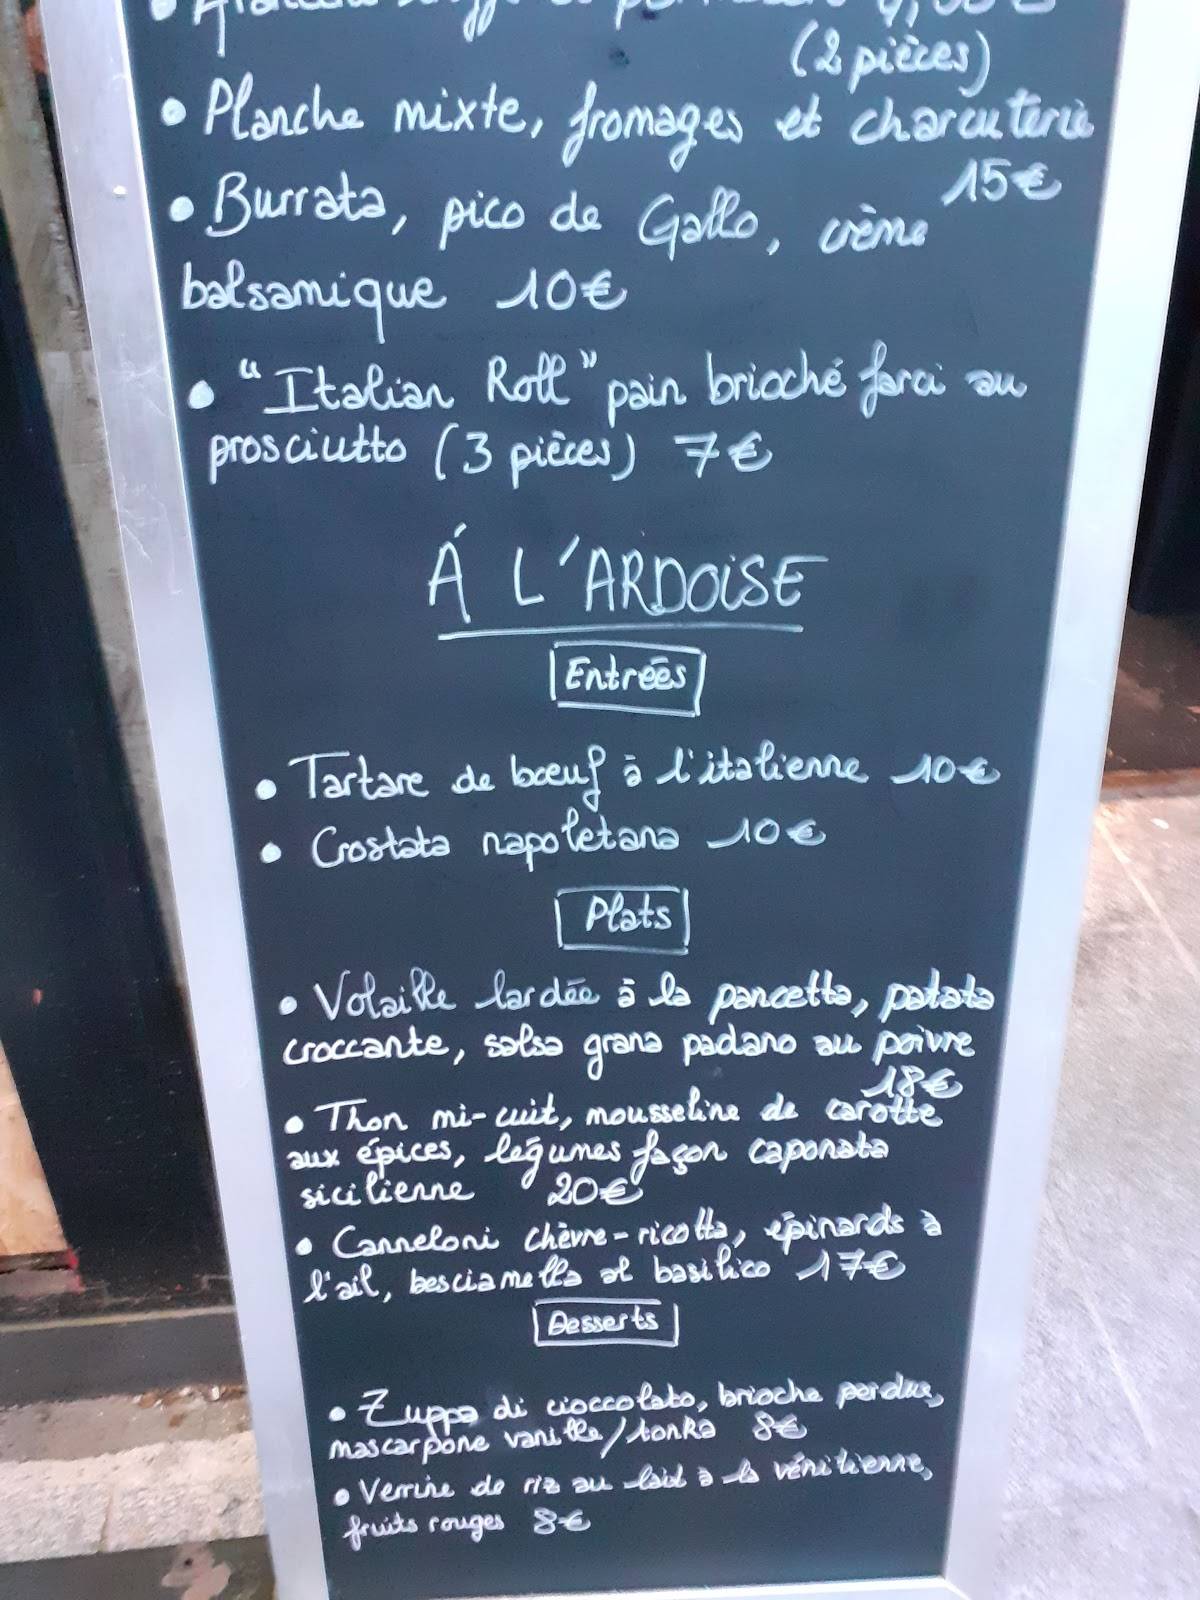 (2 pièces)
• Planche mixte, fromages et charcuterie
15€
• Burrata, pico de Gallo, crème
balsamique 10€
• "Italian Roll" pain brioché farci au
prosciutto (3 pièces) 7€
Á L'ARDOISE
Entrées
• Tartare de bœuf à l'italienne 10€
• Crostata napoletana 10€
Plats
• Volaille lardée à la pancetta, patata
croccante, salsa grana padano au poivre
18€
• Thon mi-cuit, mousseline de carotte
aux épices, légumes façon caponata
sicilienne 20€
• Canneloni chèvre-ricotta, épinards à
l'ail, besciamella al basilico 17€
Desserts
• Zuppa di cioccolato, brioche perdue,
mascarpone vanille/tonka 8€
• Verrine de riz au lait à la vénitienne,
fruits rouges 8€